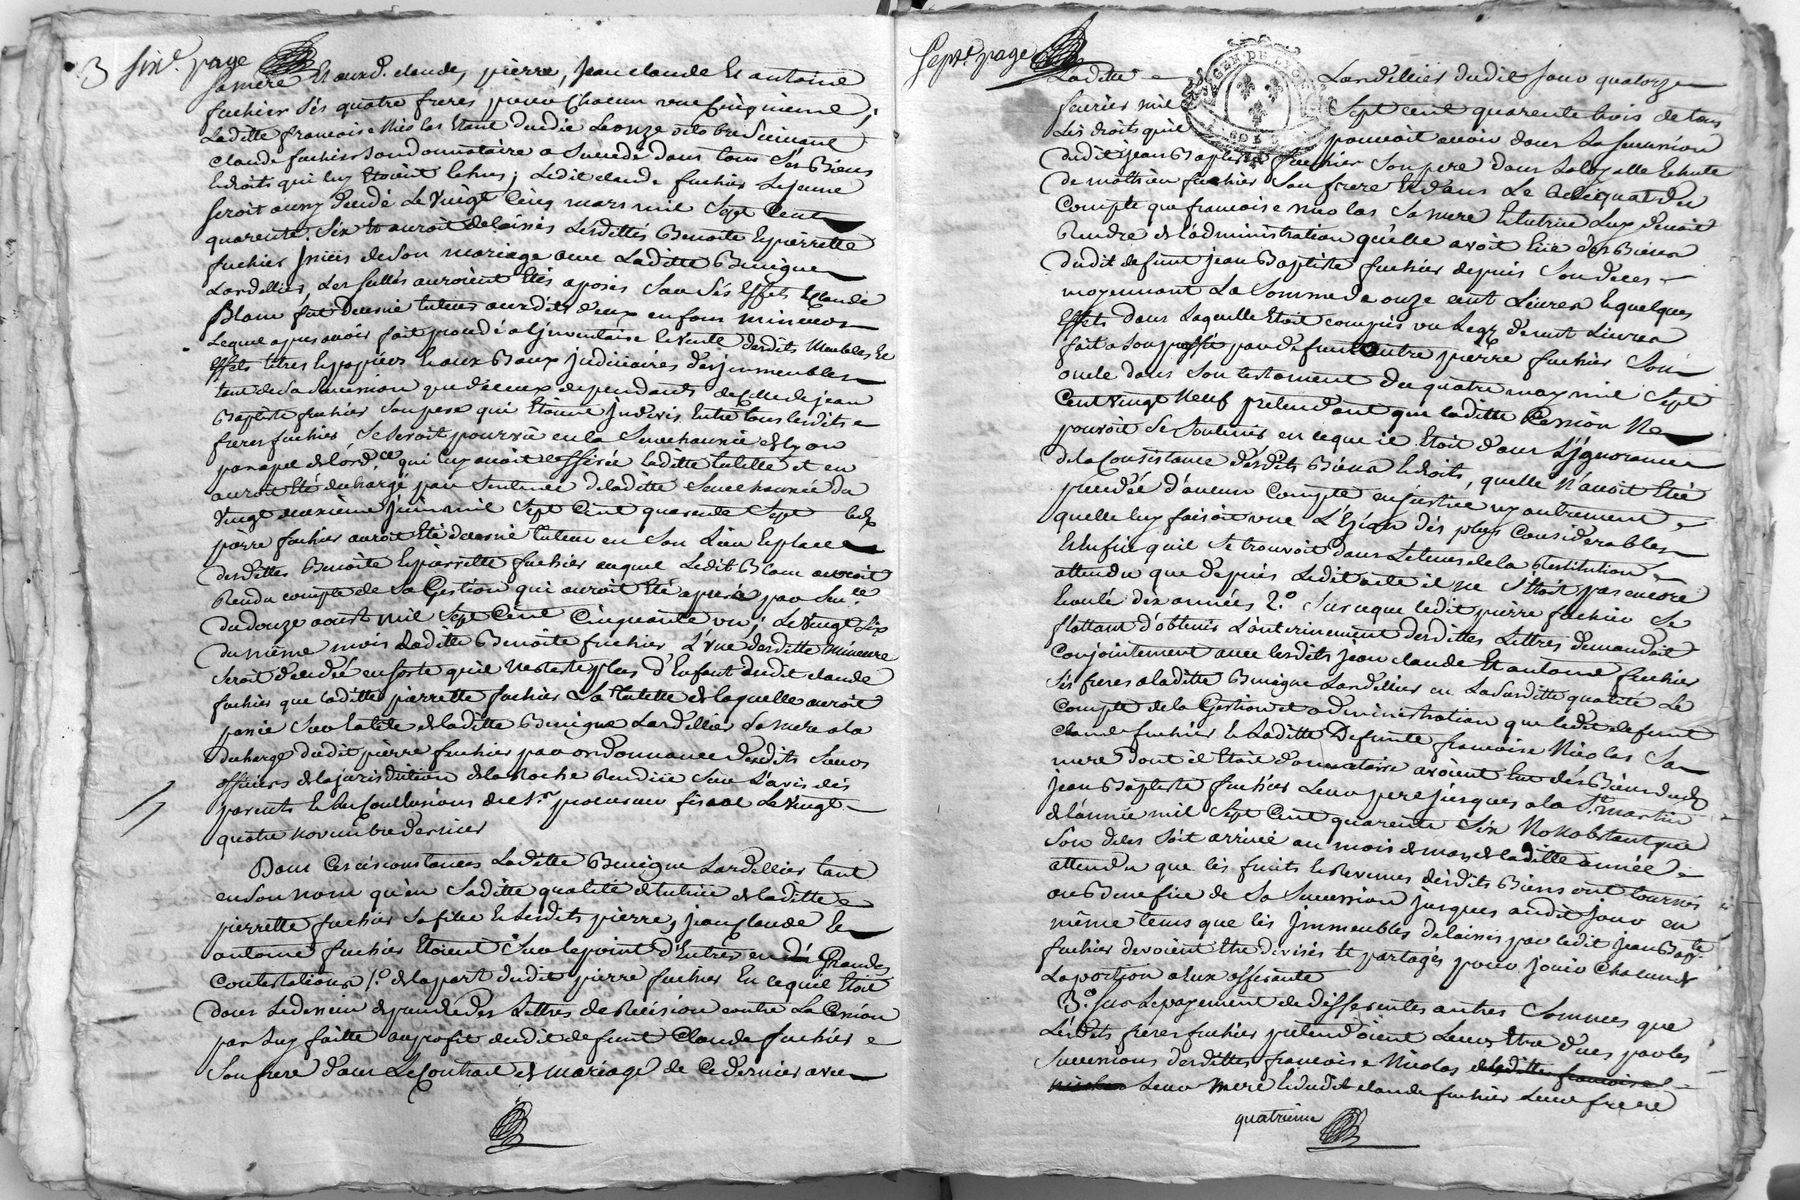 3 sixe. page
sa mere Et auxd. claude, pierre, Jean claude Et antoine
fuchier ses quatre freres pour Chacun une Cinquieme;
Laditte francoise Nicolas Etant
Claude fuchier son donnataire a succedé dans tous ses Biens
Et droits qui luy Etoient Echus; Ledit claude fuchier Le jeune
seroit aussy decedé Le Vingt Cinq mars mil Sept Cent
quarente Six Et auroit delaissés Lesdittes Benoite Et pierrette
fuchier de son mariage avec Laditte Benigne
Lardellier, Les scellés auroient Etés aposés sur ses Effets Et Claude
Blanc fut decerné tuteur auxdits deux enfans mineurs
Lequel apres avoir fait proceder a L'jnventaire Et Vente desdits Meubles Et
Effets titres Et papiers Et aux Baux judiciaires des jmmeubles
tant de sa succession que de ceux dependants de celle de jean
Baptiste fuchier son pere qui Etoient jndivis Entre tous lesdits
freres fuchier, se seroit pourvû en la Senechaussée de Lyon
par apel de Lord.ce qui luy avoit defferée laditte tutelle et en
auroit Eté dechargé par sentence de laditte Senechaussée du
Vingt deuxieme juin mil Sept Cent quarente Sept ledt
pierre fuchier auroit Eté decerné tuteur en son Lieu Et place
desdittes Benoite Et pierrette fuchier auquel Ledit Blanc auroit
Rendu compte de sa Gestion qui auroit Eté apurée par Sen.ce
du douze aoust mil Sept Cent Cinquante un; Le Vingt Six
du même mois Laditte Benoite fuchier L'une desditte mineure
seroit decedée en sorte qu'il ne reste plus d'Enfant dudit claude
fuchier que laditte pierrette fuchier La tutelle de laquelle auroit
passé sur la tête de laditte Benigne Lardellier sa mere a la
decharge dudit pierre fuchier par ordonnance desdits Sieurs
officiers de la jurisdiction de la Roche sur L'avis des
parents Et les Conclusions du s.r procureur fiscal Le Vingt
quatre novembre dernier
Dans Ces circonstances Laditte Benigne Lardellier tant
en son nom qu'en saditte qualité de tutrice de laditte
pierrette fuchier sa fille Et Lesdits pierre, jean claude Et
antoine fuchier Etoient sur le point d'Entrer en de Grandes
Contestations 1.o de la part dudit pierre fuchier En ce qu'il Etoit
dans Le dessein de prendre des Lettres de Récision contre La Cession
par Luy faitte au profit dudit defunt Claude fuchier
Son frere dans Le Contrat de mariage de Ce dernier avec
Septe. page
Laditte Lardellier dudit jour quatorze
fevrier mil Sept cent quarente trois de tous
Les droits qu'il pouvoit avoir dans La succession
dudit jean Baptiste fuchier son pere dans La Loyalle Echute
de mathieu fuchier son frere Et dans Le Reliquat du
Compte que francoise nicolas sa mere Et tutrice Luy devoit
Rendre de L'administration qu'elle avoit Eüe des Biens
dudit defunt jean Baptiste fuchier depuis son deces
moyennant La somme de onze cent Livres Et quelques
Effets dans Laquelle Etoit compris un Legs de huit Livres
fait a son profit par defunt autre pierre fuchier son
oncle dans son testament du quatre may mil Sept
Cent Vingt Neuf pretendant que laditte Cession Ne
pouvoit se soutenir en ce que il Etoit dans L'jgnorance
de la Consistance desdits Biens Et droits, quelle N'avoit Eté
precedée d'aucun Compte en justice ny autrement
quelle luy faisoit une Lezion des plus Considerables
Et Enfin qu'il se trouvoit dans Le tems de la Restitution
attendu que depuis Ledit acte il ne s'Etoit pas encore
Ecoulé dix années 2.o Sur ce que ledit pierre fuchier se
flattant d'obtenir L'enterinement desdittes Lettres demandoit
Conjointement avec lesdits jean claude Et antoine fuchier
ses freres a laditte Benigne Lardellier en La susditte qualité Le
compte de la Gestion et administration que ledit defunt
Claude fuchier Et Laditte Defunte francoise Nicolas sa
mere dont il Etoit donnataire avoient Eu des Biens dudt
Jean Baptiste fuchier Leur pere jusques a la St. martin
de L'année mil Sept Cent quarente Six Nonobstant que
son deces soit arrivé au mois de mars de laditte année
attendu que les fruits Et revenus desdits Biens ont tournés
au Benefice de sa succession jusques audit jour en
même tems que les Jmmeubles delaissés par ledit jean Bap.te
fuchier devoient être divisés et partagés pour jouir Chacun de
La portion a Eux afferante
3.o sur Le payement de differentes autres sommes que
Lesdits freres fuchier pretendoient Leur Etre dues par les
successions desdittes francoise Nicolas de laditte francoise
nicolas Leur mere Et dudit claude fuchier Leur frere
quatrieme